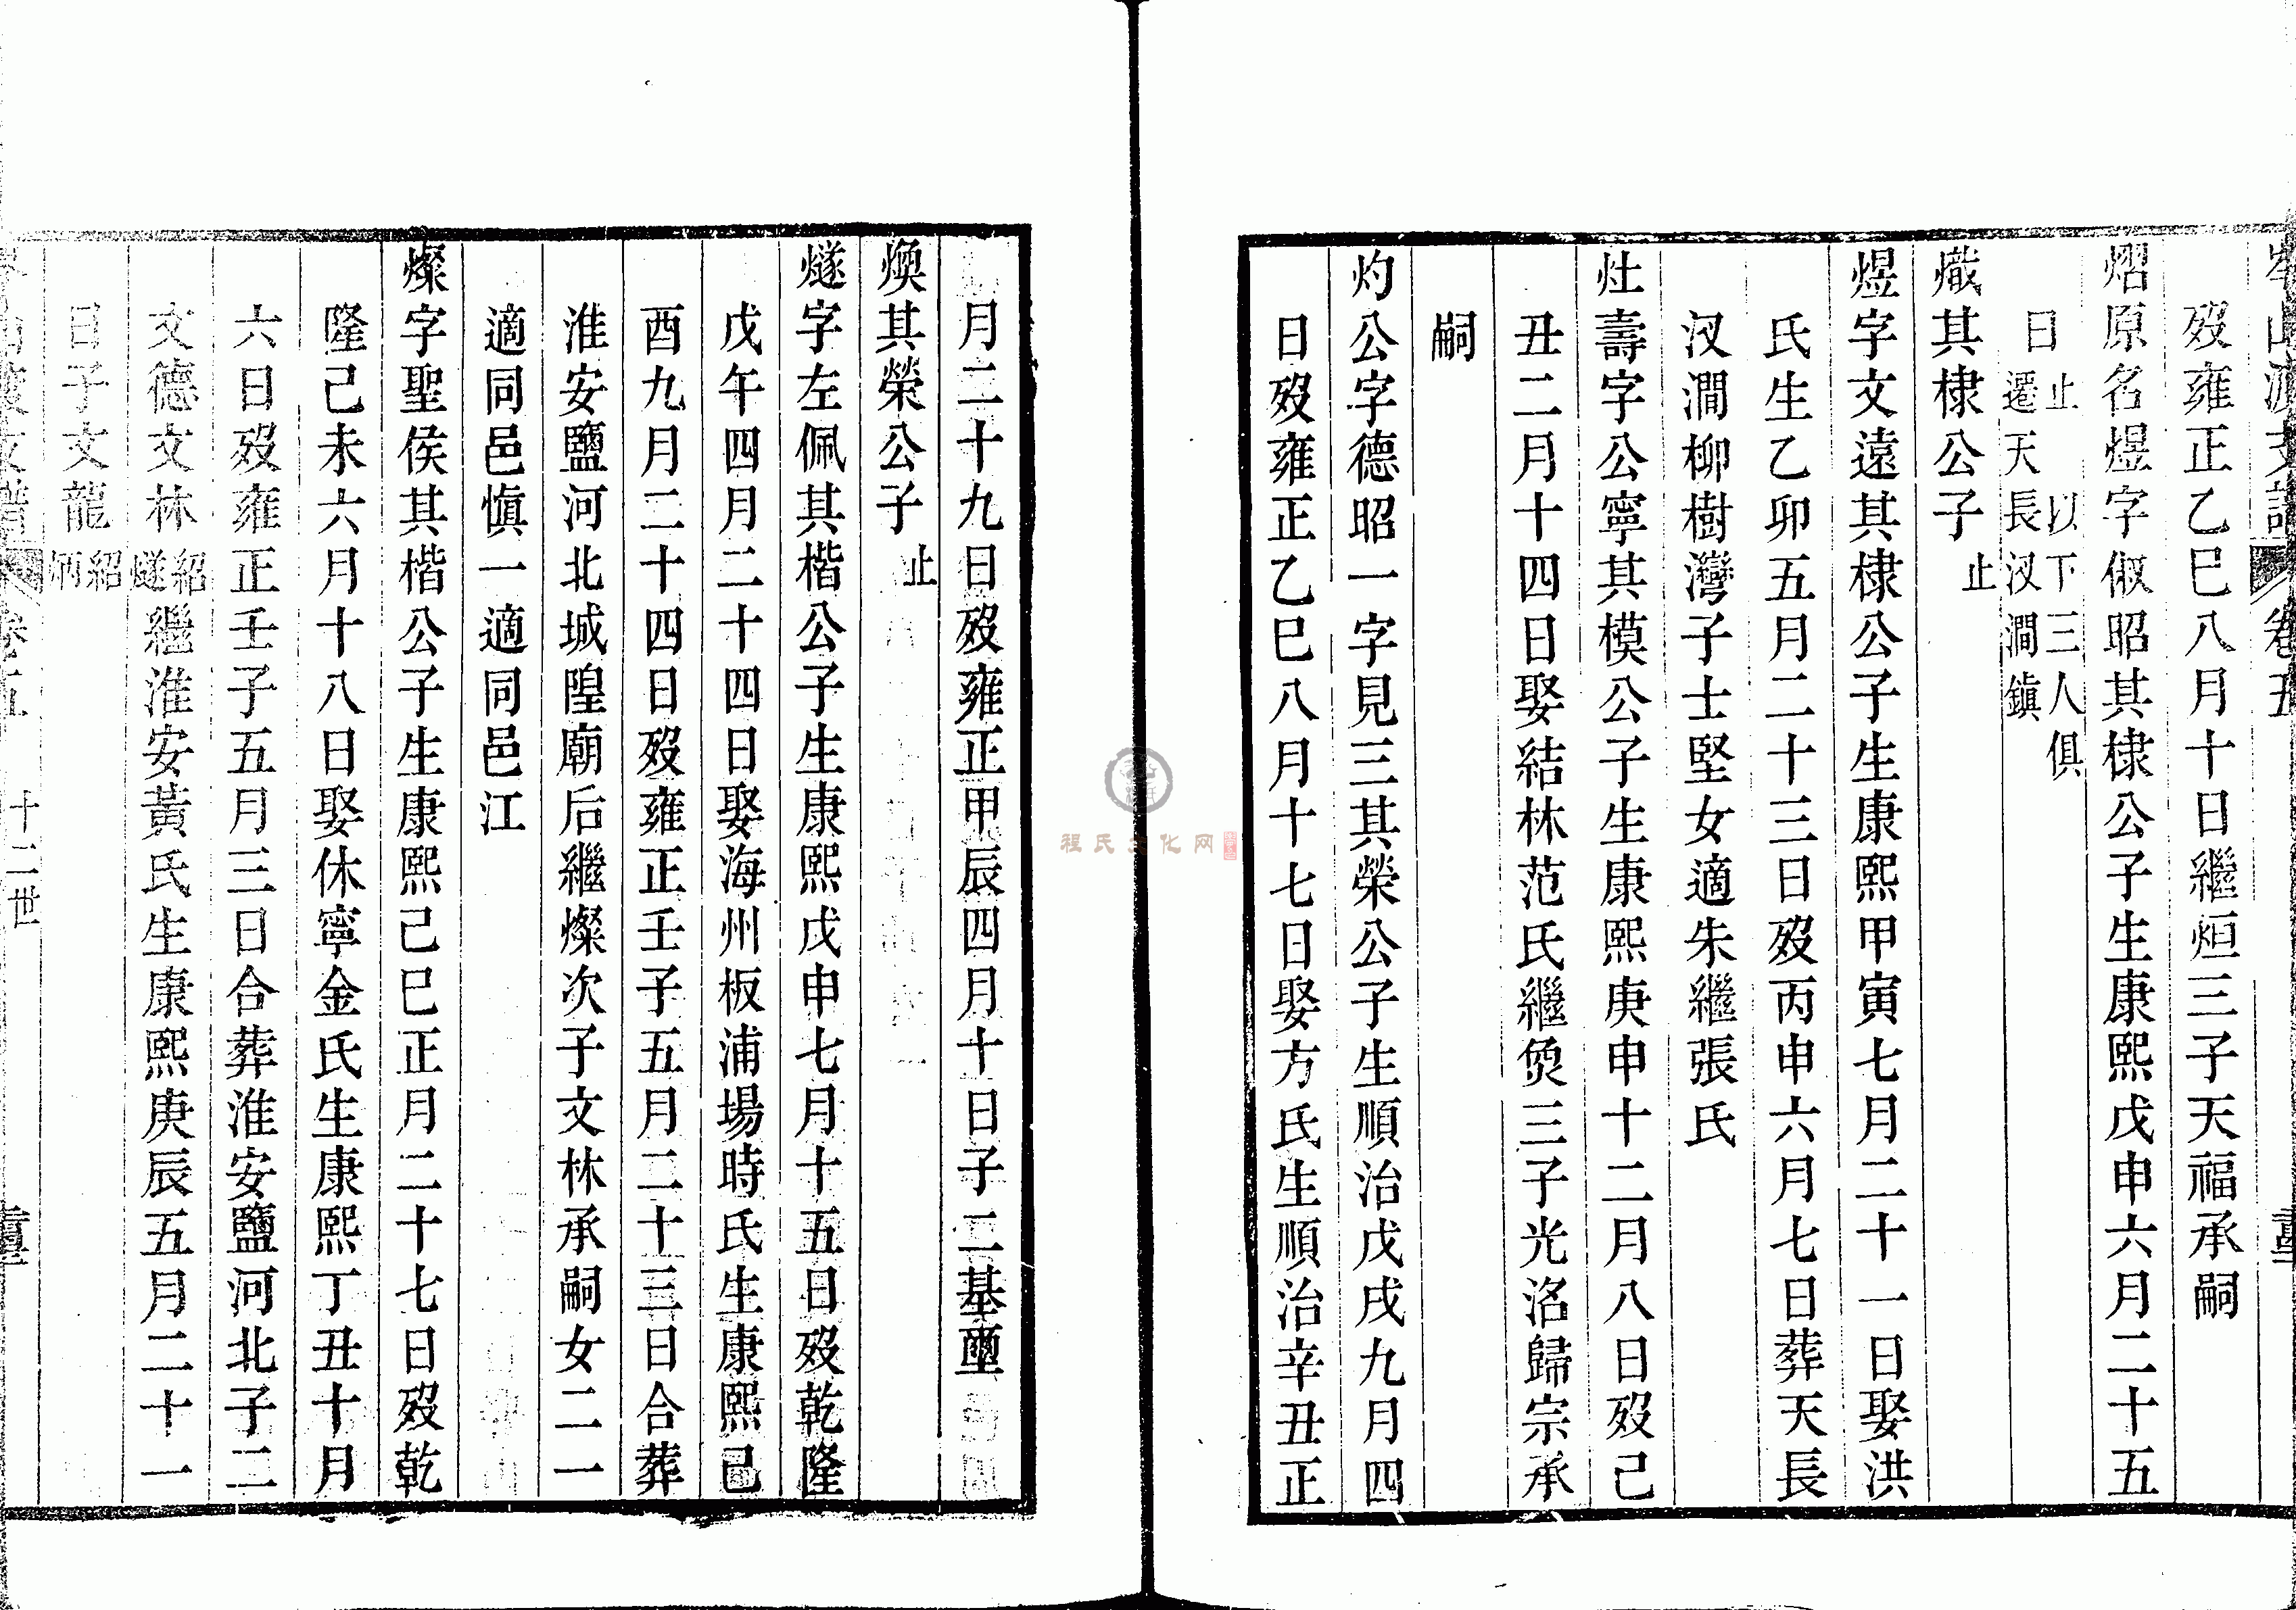 岑山渡支譜 卷五
歿雍正乙巳八月十日繼烜三子天福承嗣
熠原名煜字俶昭其棣公子生康熙戊申六月二十五
日止 以下三人俱遷天長汊澗鎮
熾其棣公子止
煜字文遠其棣公子生康熙甲寅七月二十一日娶洪
氏生乙卯五月二十三日歿丙申六月七日葬天長
汊澗柳樹灣子士堅女適朱繼張氏
灶壽字公寧其模公子生康熙庚申十二月八日歿己
丑二月十四日娶結林范氏繼煲三子光洺歸宗承
嗣
灼公字德昭一字見三其榮公子生順治戊戌九月四
日歿雍正乙巳八月十七日娶方氏生順治辛丑正
月二十九日歿雍正甲辰四月十日子二基壐
煥其榮公子止
燧字左佩其楷公子生康熙戊申七月十五日歿乾隆
戊午四月二十四日娶海州板浦場時氏生康熙己
酉九月二十四日歿雍正壬子五月二十三日合葬
淮安鹽河北城隍廟后繼燦次子文林承嗣女二一
適同邑慎一適同邑江
燦字聖侯其楷公子生康熙己巳正月二十七日歿乾
隆己未六月十八日娶休寧金氏生康熙丁丑十月
六日歿雍正壬子五月三日合葬淮安鹽河北子二
文德文林紹燧繼淮安黃氏生康熙庚辰五月二十一
日子文龍紹炳
岑山渡支譜 卷五 十二世
程氏文化网